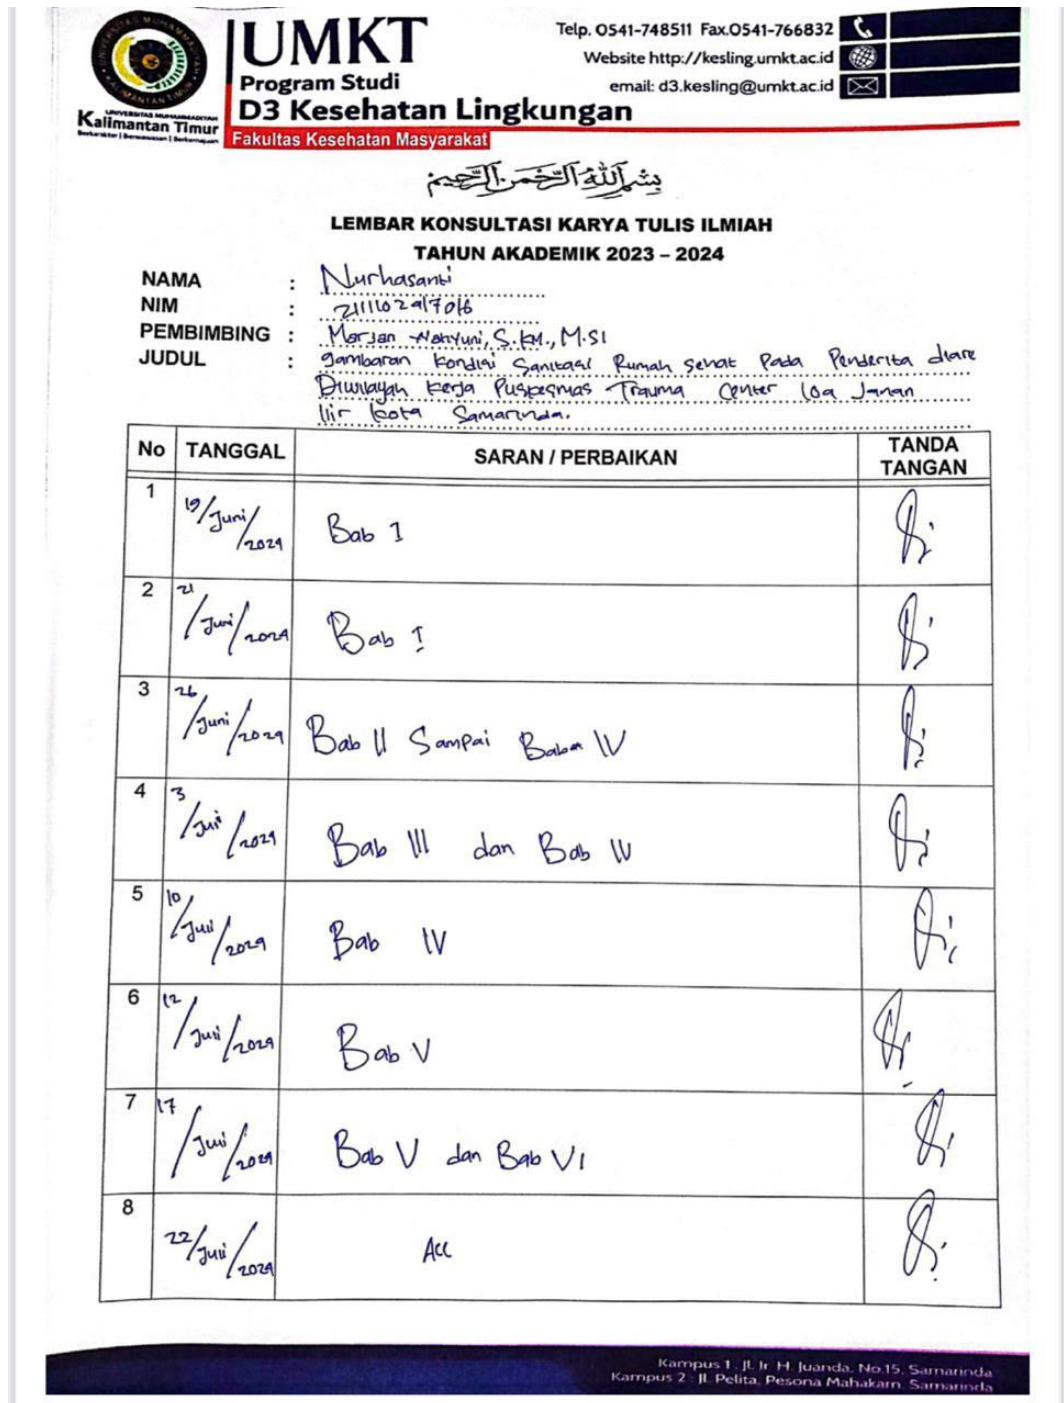 UNIVERSITAS MUHAMMADIYAH
Kalimantan Timur
Berkarakter | Berwawasan | Berkemajuan
UMKT
Program Studi
D3 Kesehatan Lingkungan
Fakultas Kesehatan Masyarakat
Telp. 0541-748511 Fax.0541-766832
Website http://kesling.umkt.ac.id
email: d3.kesling@umkt.ac.id
بسم الله الرحمن الرحيم
LEMBAR KONSULTASI KARYA TULIS ILMIAH
TAHUN AKADEMIK 2023 – 2024
NAMA : Nurhasanti
NIM : 2111102917016
PEMBIMBING : Marjan Wahyuni, S.KM., M.SI
JUDUL : gambaran kondisi Sanitasi Rumah sehat Pada Penderita diare
Diwilayah kerja Puskesmas Trauma Center loa Janan
Ilir kota Samarinda.
No TANGGAL SARAN / PERBAIKAN TANDA TANGAN
1 19/Juni/2024 Bab I
2 21/Juni/2024 Bab I
3 26/Juni/2024 Bab II Sampai IV
4 3/Juli/2024 Bab III dan Bab IV
5 10/Juli/2024 Bab IV
6 12/Juli/2024 Bab V
7 17/Juli/2024 Bab V dan Bab VI
8 22/Juli/2024 Acc
Kampus 1 : Jl. Ir. H. Juanda, No.15, Samarinda
Kampus 2 : Jl. Pelita, Pesona Mahakam, Samarinda